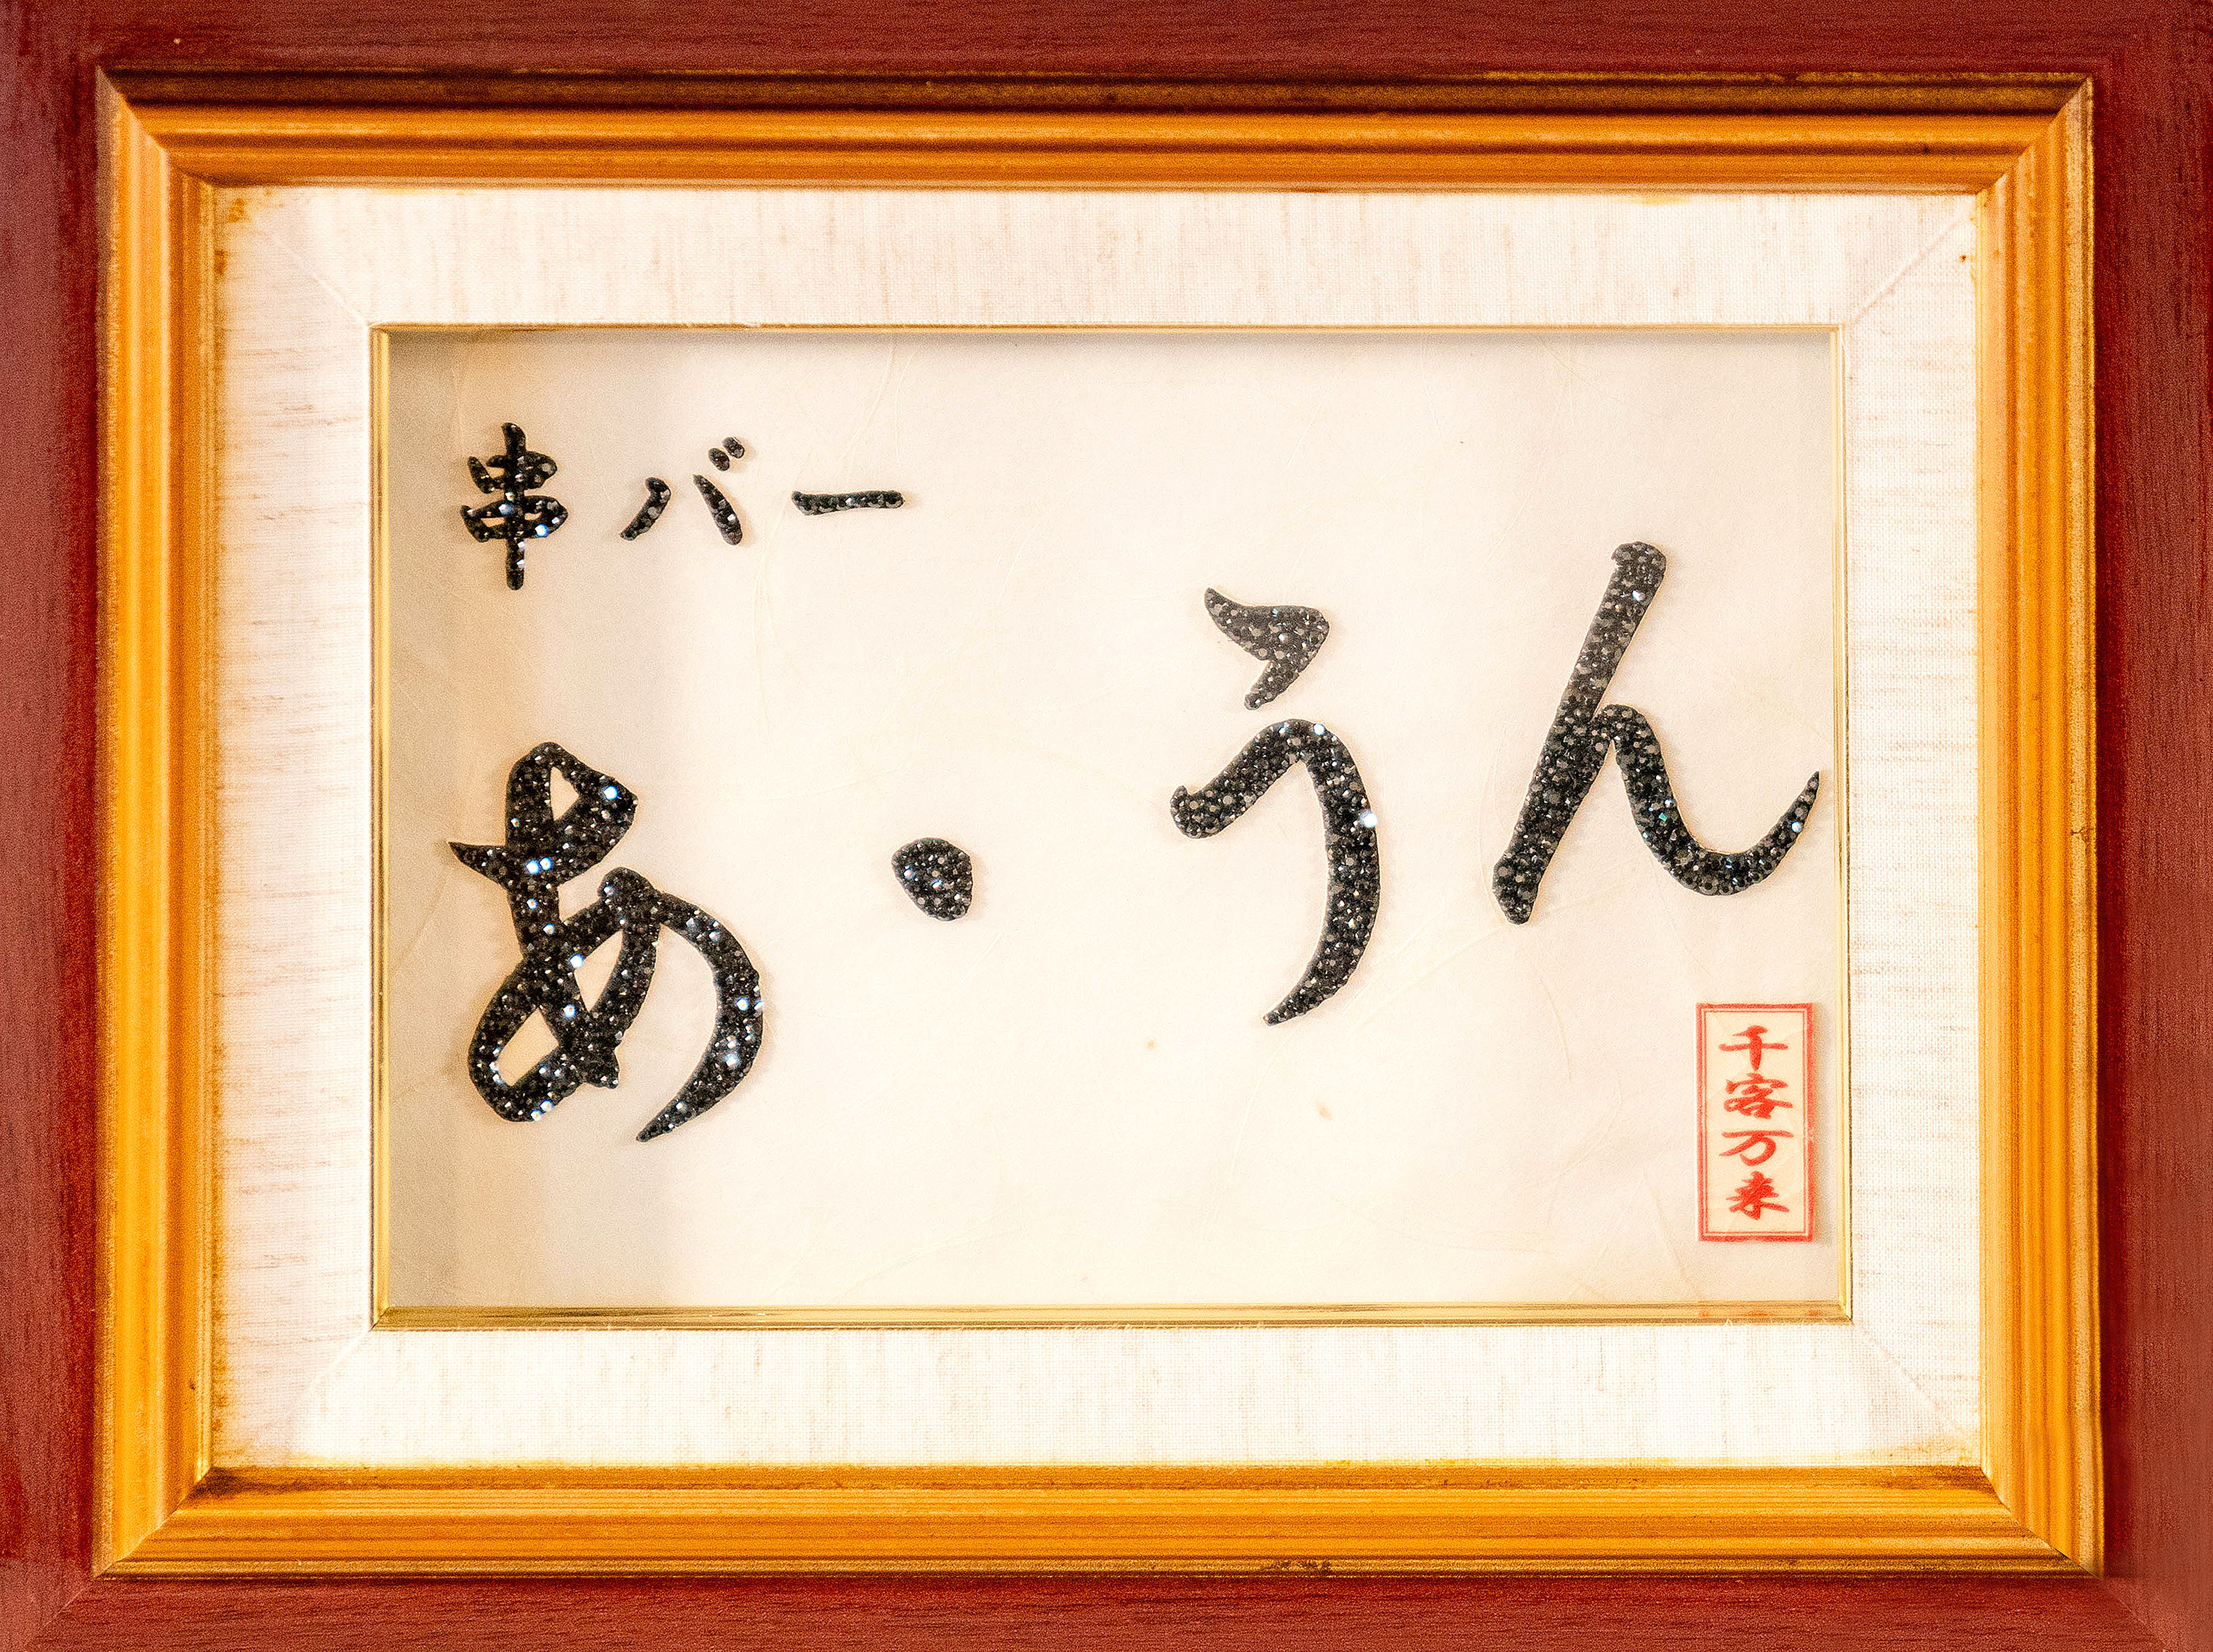 串バー
あ・うん
千客万来